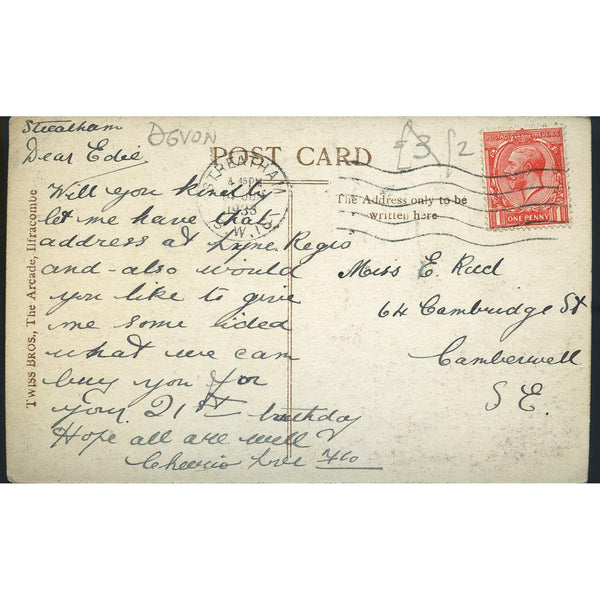 Streatham
DEVON
£3
/2
POST CARD
Dear Edie
STREATHAM
4.45PM
1933
S.W.16
POSTAGE REVENUE
ONE PENNY
The Address only to be
written here
Will you kindly
let me have that
address at Lyme Regis
and also would
you like to give
me some idea
what we can
buy you for
your 21st birthday
Hope all are well
Cheerio Love Flo
Miss E.
64 Cambridge St
Camberwell
S E.
TWISS BROS., The Arcade, Ilfracombe